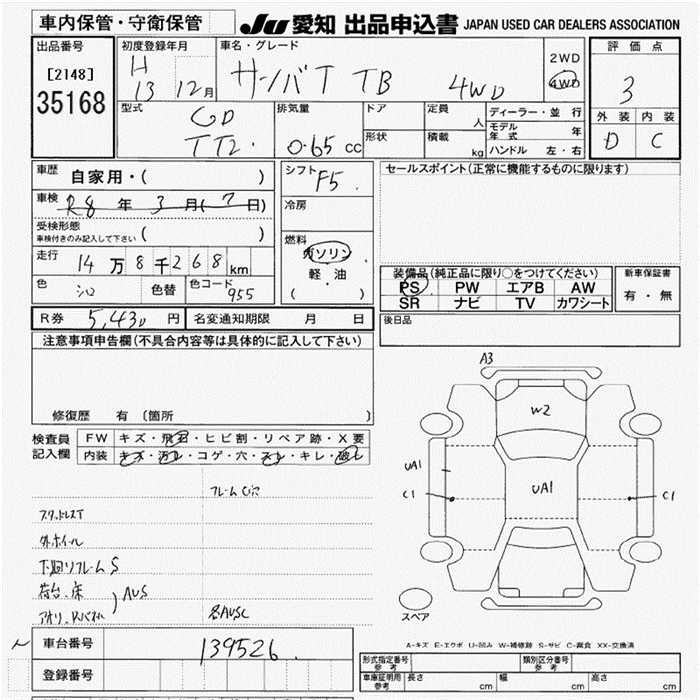 車内保管・守衛保管
JU 愛知 出品申込書 JAPAN USED CAR DEALERS ASSOCIATION
出品番号
[2148]
35168
初度登録年月
H
13 12月
車名・グレード
サンバT TB 4WD
2WD
4WD
評価点
3
外装 内装
D C
型式
GD
TT2
排気量
0.65 cc
ドア
形状
定員
人
積載
kg
ディーラー・並行
モデル年式 年
ハンドル 左・右
車歴
自家用・( )
車検
R8 年 3 月(7日)
受検形態
車検付きのみ記入して下さい ( )
走行
14 万 8 千 268 km
色
シロ
色替
色コード
955
シフト
F5
冷房
燃料
ガソリン
軽・油
( )
セールスポイント(正常に機能するものに限ります)
装備品(純正品に限り○をつけてください)
PS PW エアB AW
SR ナビ TV カワシート
新車保証書
有・無
R券 5,430 円
名変通知期限 月 日
後日品
注意事項申告欄(不具合内容等は具体的に記入して下さい)
修復歴 有 〔箇所 〕
検査員
記入欄
FW キズ・飛石・ヒビ割・リペア跡・X要
内装 キズ・汚れ・コゲ・穴・スレ・キレ・破レ
フレームC穴
スタッドレスT
外ホイール
下廻りフレームS
荷台.床
AUS
アオリ.Rパネル
各AUSC
A3
W2
UA1
UA1
C1
C1
スペア
A-キズ E-エクボ U-凹み W-補修跡 S-サビ C-腐食 XX-交換済
車台番号
139526
登録番号
型式指定番号
参考
類別区分番号
参考
車庫証明用
参考
長さ cm
幅 cm
高さ cm